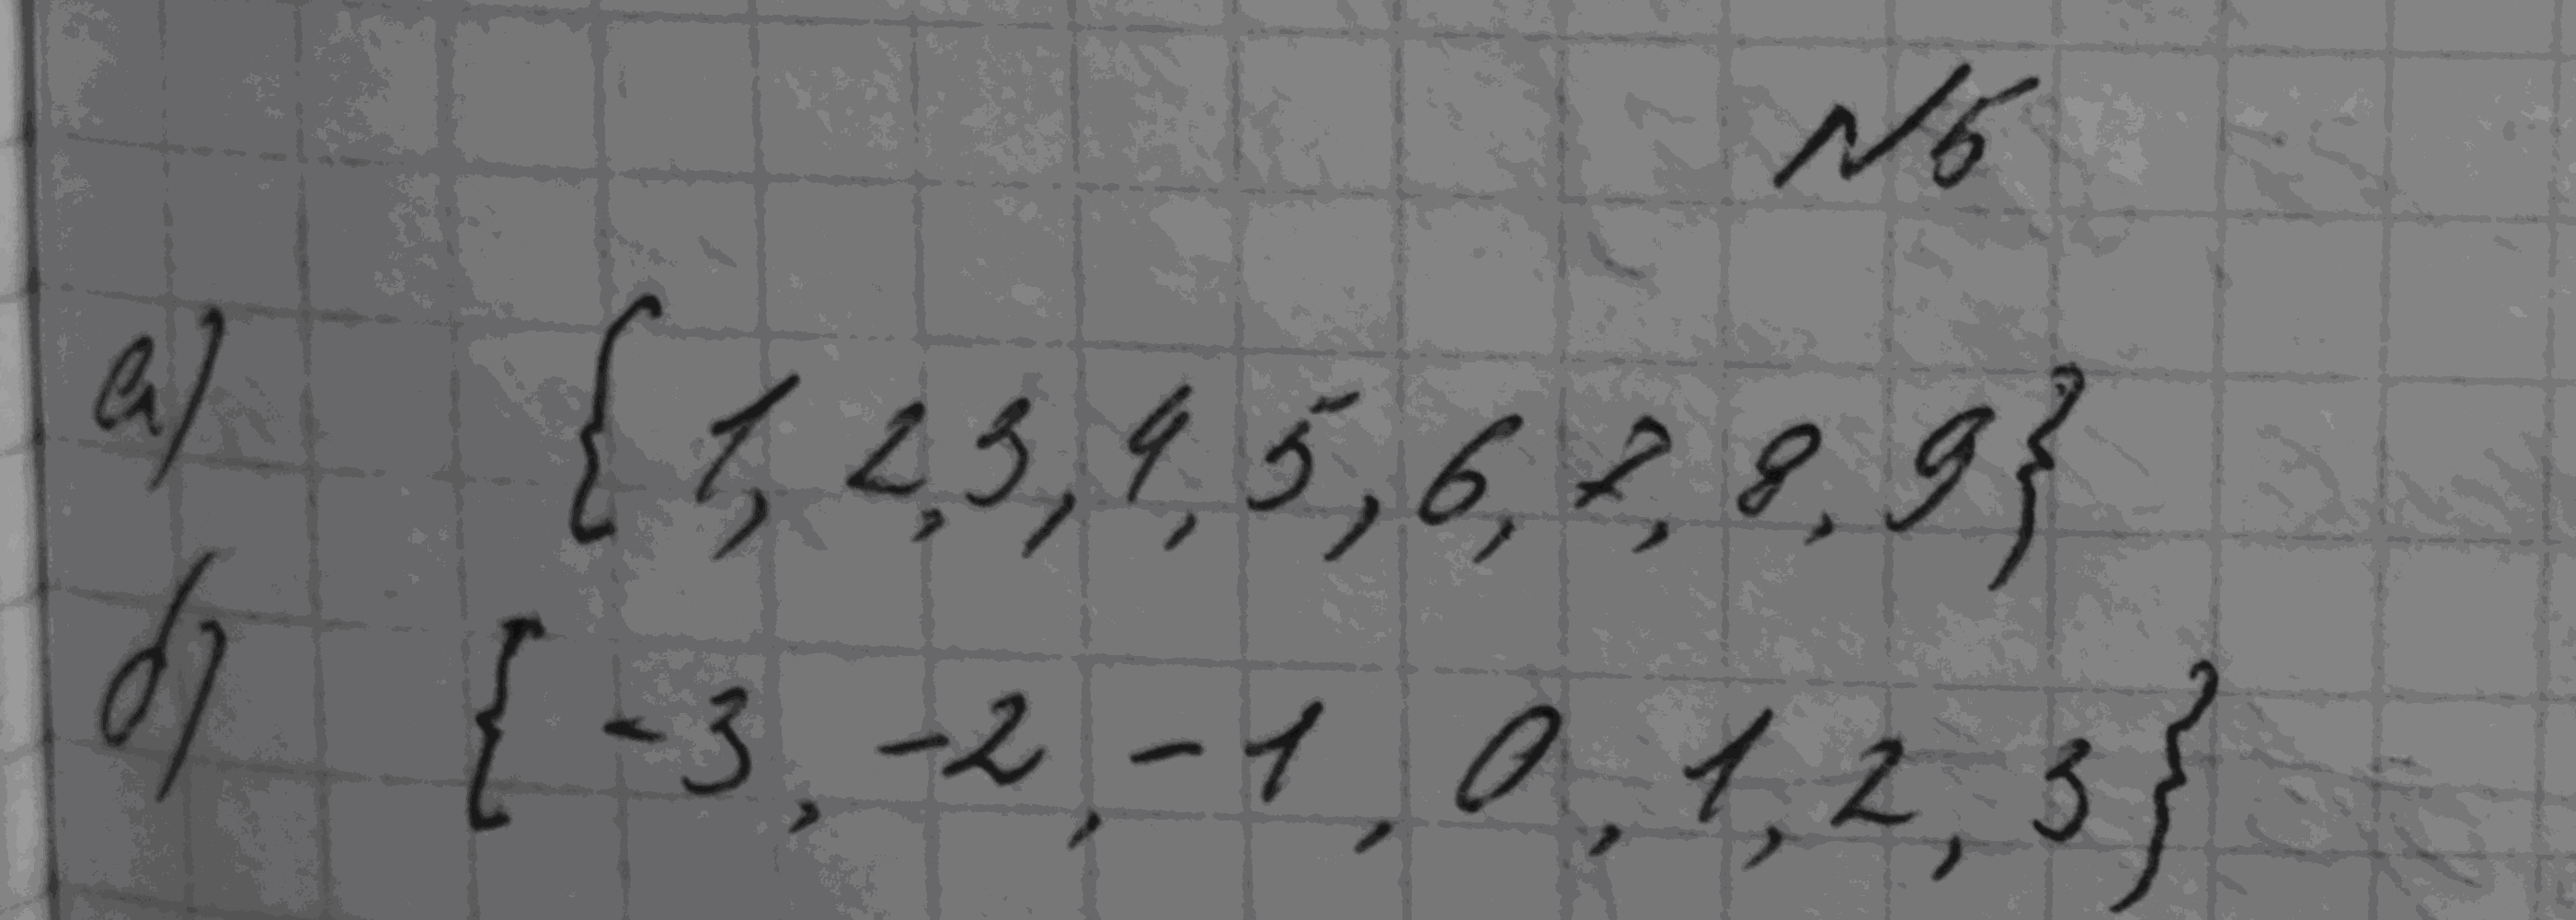 №5
а) {1, 2, 3, 4, 5, 6, 7, 8, 9}
б) {-3, -2, -1, 0, 1, 2, 3}